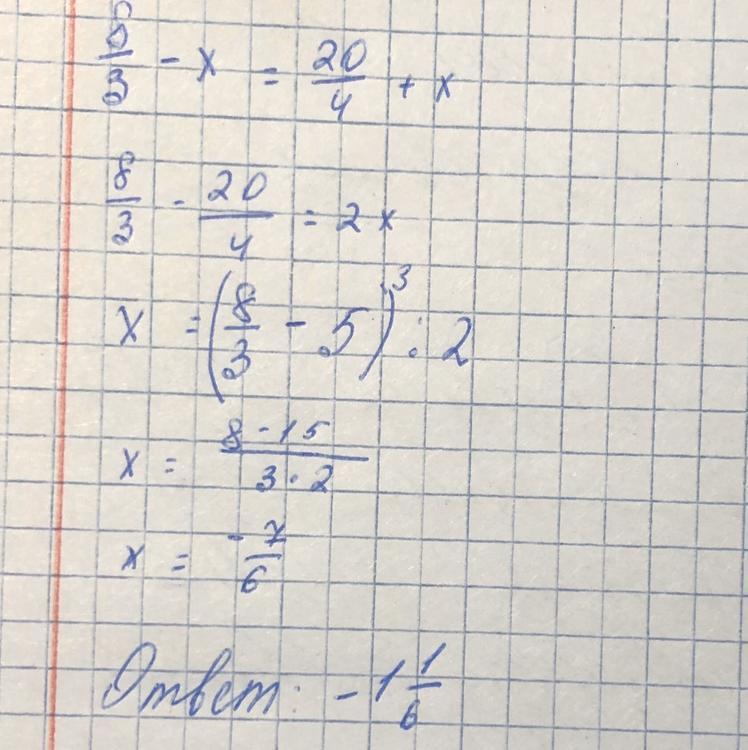 8/3 - x = 20/4 + x
8/3 - 20/4 = 2x
x = (8/3 - 5)³ : 2
x = (8 - 15)/(3 · 2)
x = -7/6
Ответ: -1 1/6